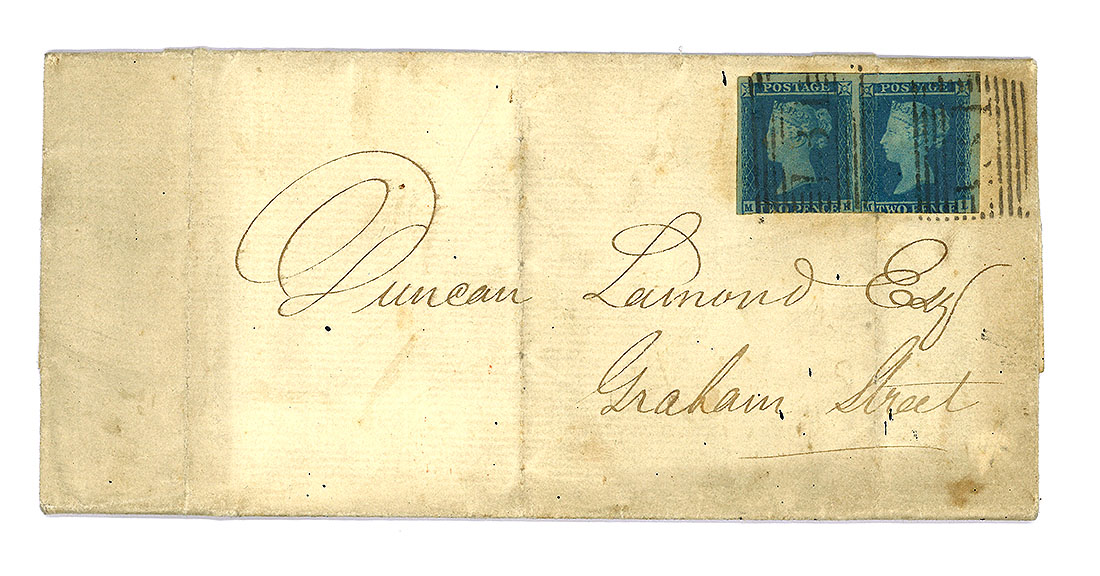 POSTAGE POSTAGE
TWO PENCE TWO PENCE
Duncan Lamond Esq
Graham Street